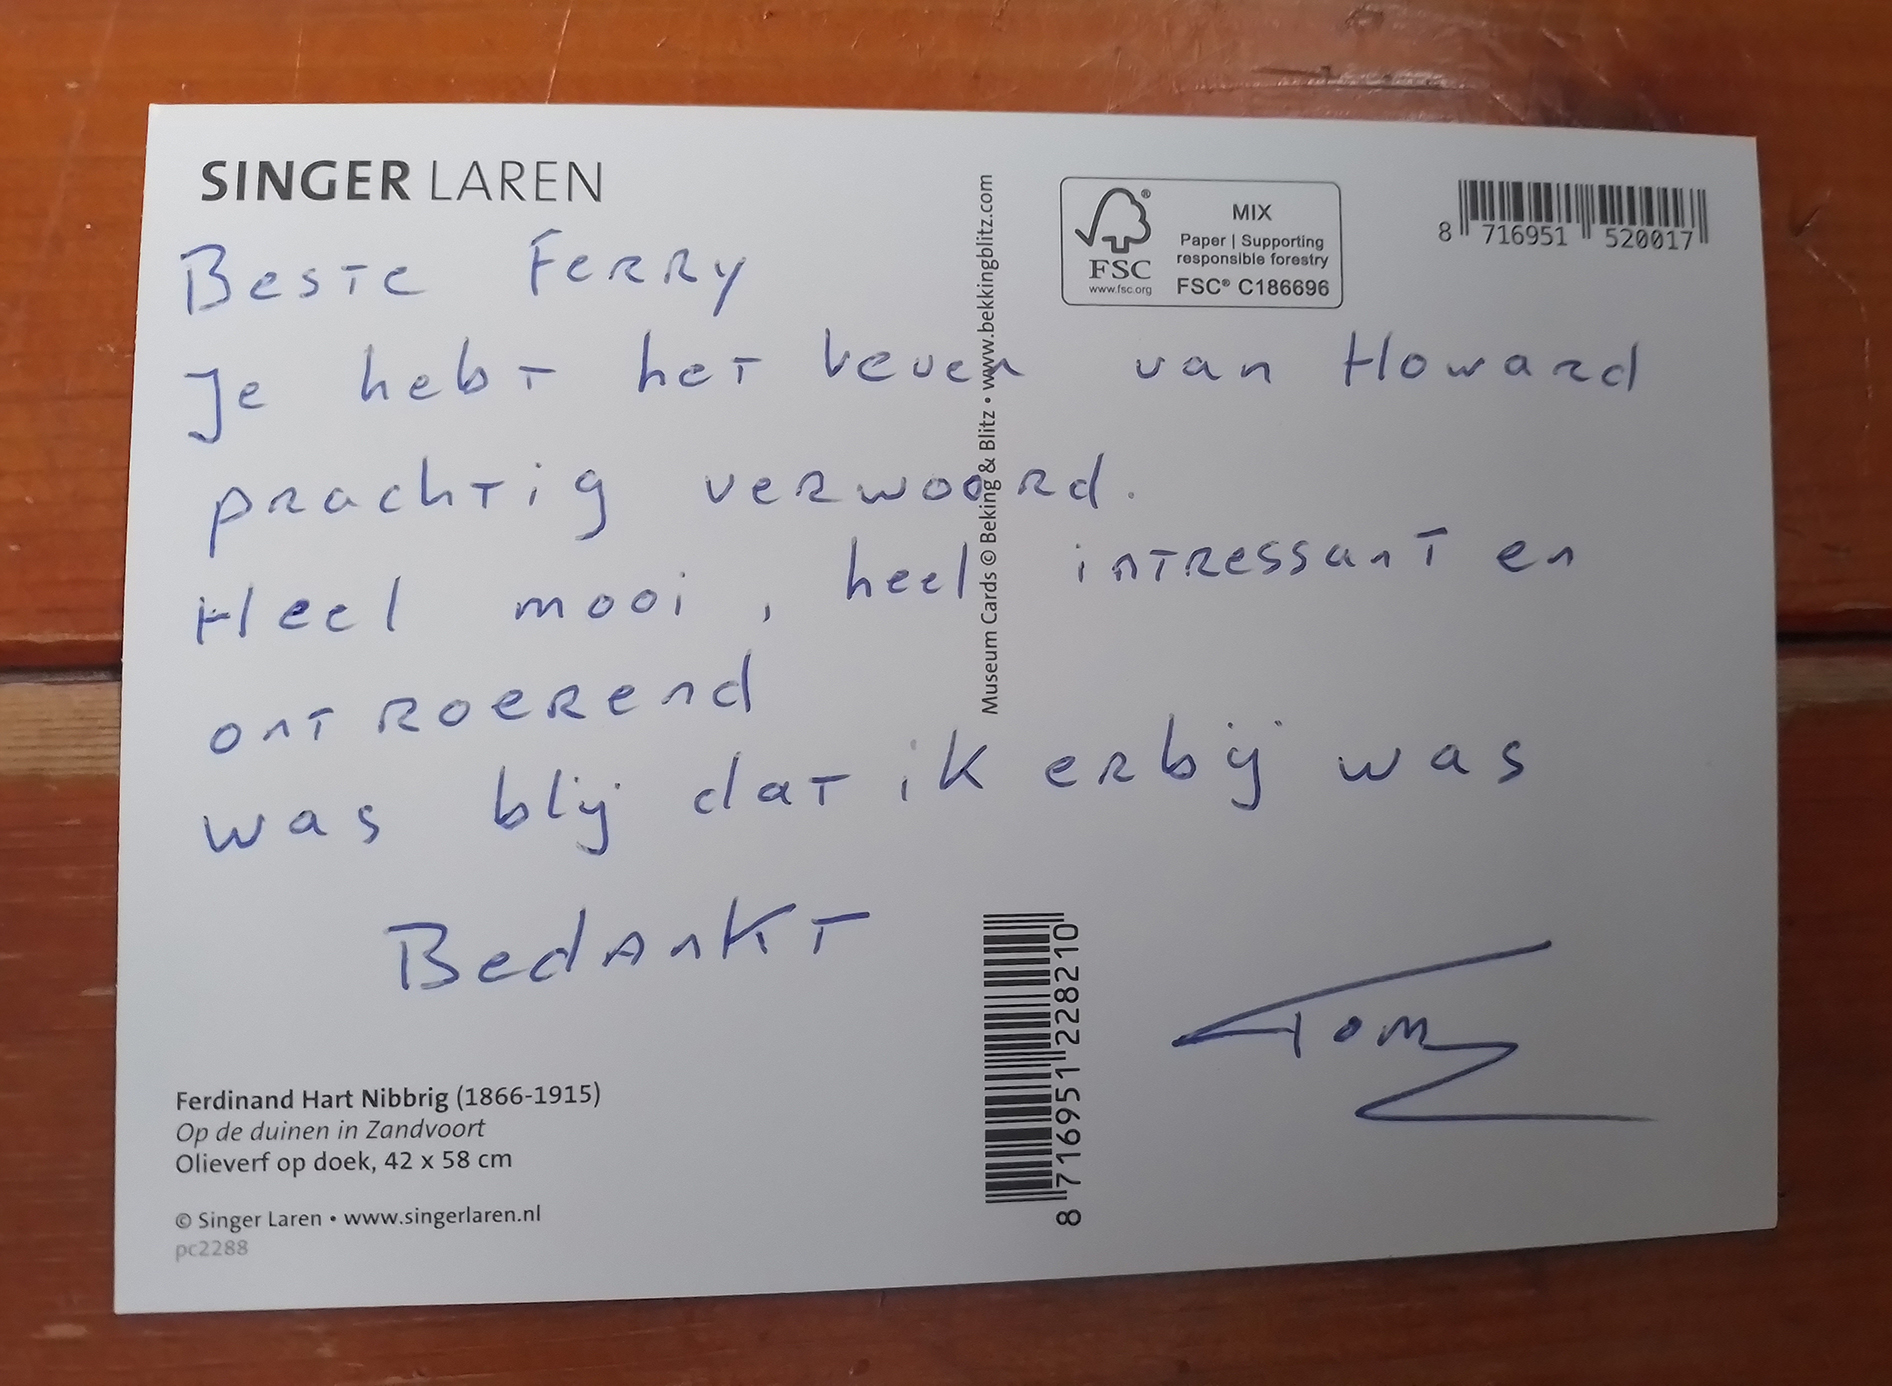 SINGER LAREN
Beste Ferry
Je hebt het leven van Howard
prachtig verwoord.
Heel mooi, heel intressant en
ontroerend
was blij dat ik erbij was
Bedankt
Tom
Ferdinand Hart Nibbrig (1866-1915)
Op de duinen in Zandvoort
Olieverf op doek, 42 x 58 cm
© Singer Laren • www.singerlaren.nl
pc2288
Museum Cards © Beking & Blitz • www.bekkingblitz.com
FSC
www.fsc.org
MIX
Paper | Supporting
responsible forestry
FSC® C186696
8 716951 520017
8 716951 228210